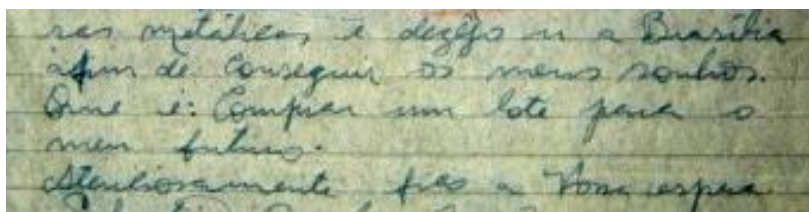 ras metálicas e dezejo ir a Brasília
afim de conseguir os meus sonhos.
Que é: Comprar um lote para o
meu futuro.
Atenciosamente fico a Vossa espera